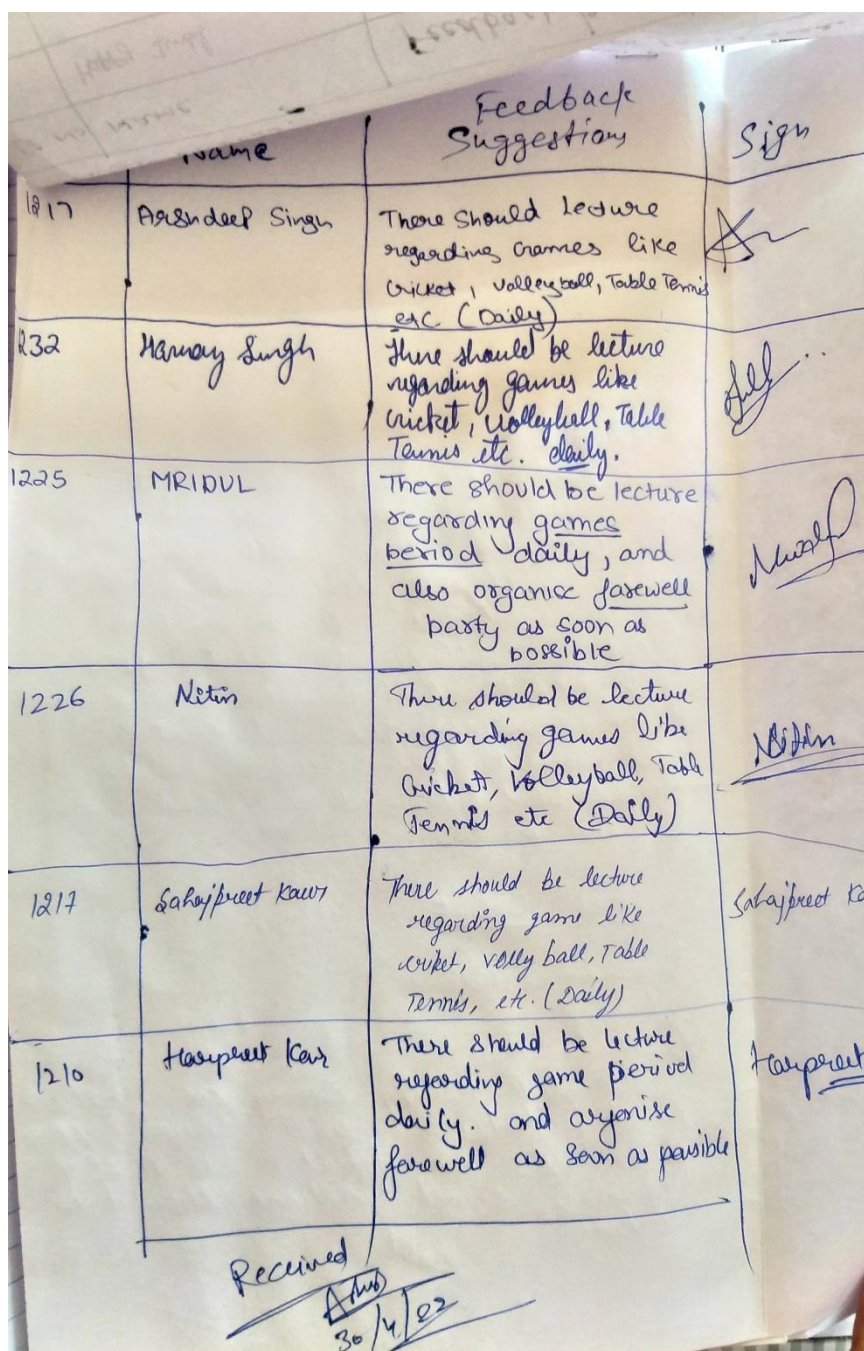 Feedback
no Name
Name
Feedback
Suggestions
Sign
1217
Arshdeep Singh
There Should Lecture
regarding Games like
Cricket, Volleyball, Table Tennis
etc (Daily)
1232
Singh
There should be lecture
regarding games like
cricket, volleyball, Table
Tennis etc. daily.
1225
MRIDUL
There should be lecture
regarding games
period daily, and
also organise farewell
party as soon as
possible
1226
Nitin
There should be lecture
regarding games like
Cricket, Volleyball, Table
Tennis etc (Daily)
Nitin
1217
Sahajpreet Kaur
There should be lecture
regarding game like
criket, volly ball, Table
Tennis, etc. (Daily)
Sahajpreet Ka
1210
Harpreet Kaur
There should be lecture
regarding game period
daily. and organise
farewell as soon as possible
Harpreet
Received
30/4/22